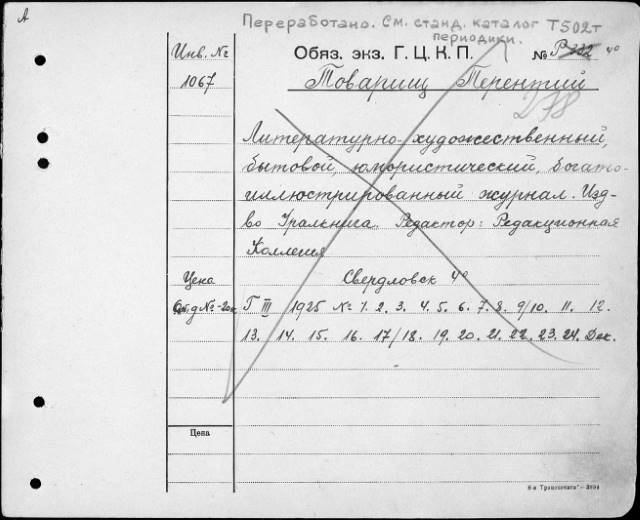 А
Переработано. См. станд. каталог Т502т
периодики.
Инв. № Обяз. экз. Г. Ц. К. П. № Р 4°
1067 Товарищ Терентий
278
Литературно-художественный,
бытовой, юмористический, богато-
иллюстрированный журнал. Изд-
во Уралкнига. Редактор: Редакционная
Коллегия
Цена Свердловск 4°
№ -20к Г III 1925 № 1. 2. 3. 4. 5. 6. 7. 8. 9/10. 11. 12.
13. 14. 15. 16. 17/18. 19. 20. 21. 22. 23. 24. Дек.
Цена